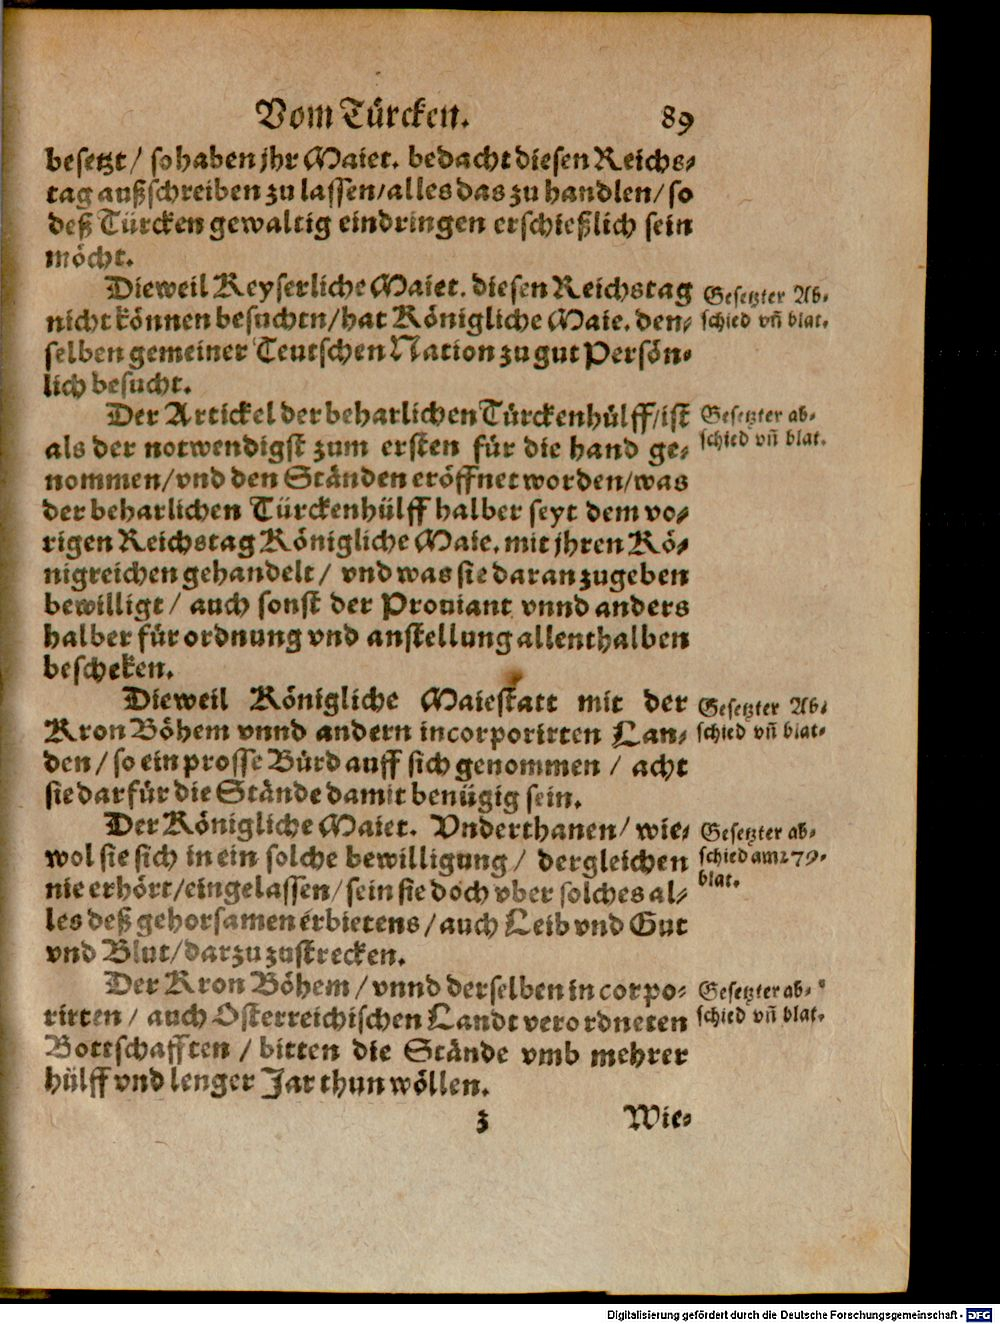 Vom Türcken. 89
besetzt / so haben jhr Maiet. bedacht diesen Reichs-
tag außschreiben zu lassen/alles das zu handlen/so
deß Türcken gewaltig eindringen erschießlich sein
möcht.
Dieweil Keyserliche Maiet. diesen Reichstag
nicht können besuchen/hat Königliche Maie. den-
selben gemeiner Teutschen Nation zu gut Persön-
lich besucht.
Gesetzter Ab-
schied vñ blat.
Der Artickel der beharlichen Türckenhülff/ist
als der notwendigst zum ersten für die hand ge-
nommen/vnd den Ständen eröffnet worden/was
der beharlichen Türckenhülff halber seyt dem vo-
rigen Reichstag Königliche Maie. mit jhren Kö-
nigreichen gehandelt / vnd was sie daran zugeben
bewilligt / auch sonst der Prouiant vnnd anders
halber für ordnung vnd anstellung allenthalben
bescheken.
Gesetzter ab-
schied vñ blat.
Dieweil Königliche Maiestatt mit der
Kron Böhem vnnd andern incorporirten Lan-
den / so ein prosse Bürd auff sich genommen / acht
sie darfür die Stände damit benügig sein.
Gesetzter Ab-
schied vñ blat.
Der Königliche Maiet. Vnderthanen / wie-
wol sie sich in ein solche bewilligung / dergleichen
nie erhört/eingelassen/sein sie doch vber solches al-
les deß gehorsamen erbietens / auch Leib vnd Gut
vnd Blut/darzu zustrecken.
Gesetzter ab-
schied am 279.
blat.
Der Kron Böhem / vnnd derselben incorpo-
rirten / auch Osterreichischen Landt verordneten
Bottschafften / bitten die Stände vmb mehrer
hülff vnd lenger Jar thun wöllen.
Gesetzter ab-
schied vñ blat.
z Wie-
Digitalisierung gefördert durch die Deutsche Forschungsgemeinschaft - DFG